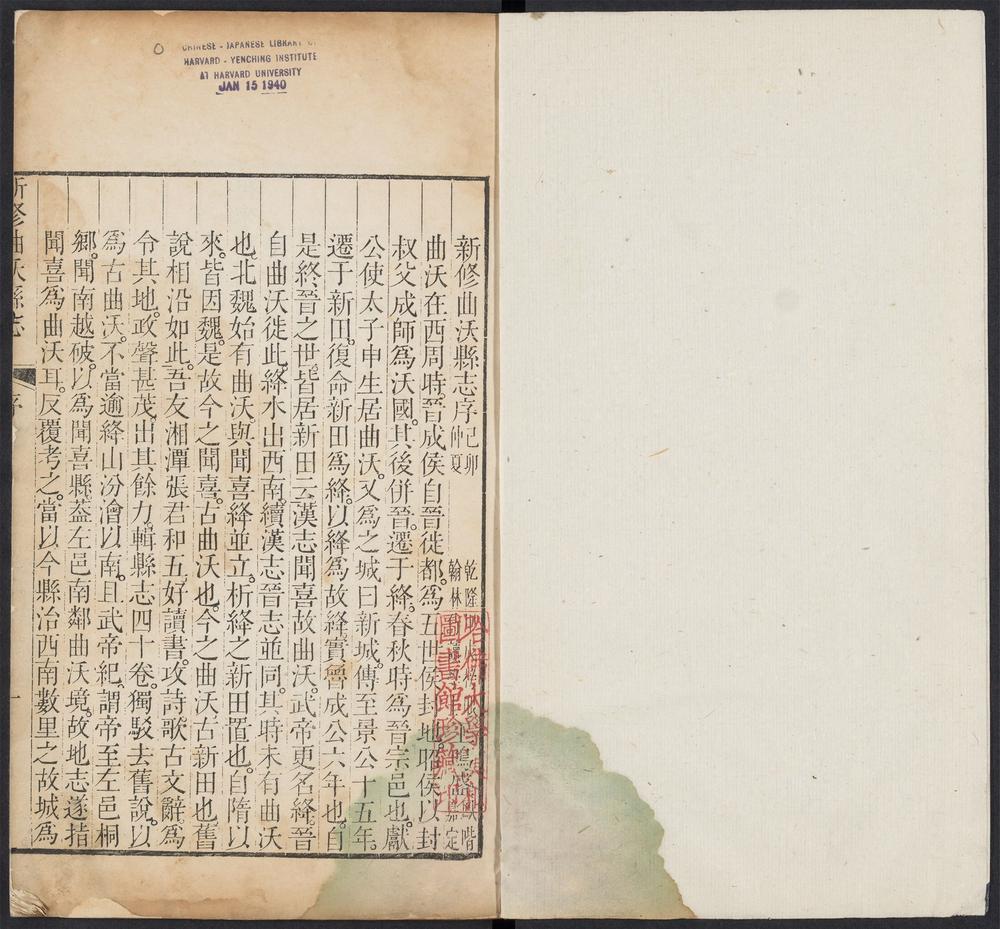 CHINESE - JAPANESE LIBRARY
HARVARD - YENCHING INSTITUTE
AT HARVARD UNIVERSITY
JAN 15 1940
新修曲沃縣志序 己卯仲夏 乾隆 翰林 嘉定
曲沃在西周時。晉成侯自晉徙都。爲五世侯封地。昭侯以封
叔父成師爲沃國。其後併晉。遷于絳。春秋時爲晉宗邑也。獻
公使太子申生居曲沃。又爲之城曰新城。傳至景公十五年。
遷于新田。復命新田爲絳。以絳爲故絳。實魯成公六年也。自
是終晉之世。皆居新田云。漢志聞喜故曲沃。武帝更名。絳晉
自曲沃徙此。絳水出西南。續漢志晉志並同。其時未有曲沃
也。北魏始有曲沃。與聞喜絳並立。析絳之新田置也。自隋以
來。皆因魏。是故今之聞喜。古曲沃也。今之曲沃。古新田也。舊
說相沿如此。吾友湘潭張君和五。好讀書。攻詩歌古文辭。爲
令其地。政聲甚茂。出其餘力。輯縣志四十卷。獨駁去舊說。以
爲古曲沃。不當逾絳山汾澮以南。且武帝紀。謂帝至左邑桐
鄉。聞南越破。以爲聞喜縣。葢左邑南鄰曲沃境。故地志遂指
聞喜爲曲沃耳。反覆考之。當以今縣治西南數里之故城爲
新修曲沃縣志 序 一
哈佛大學
圖書館珍藏印